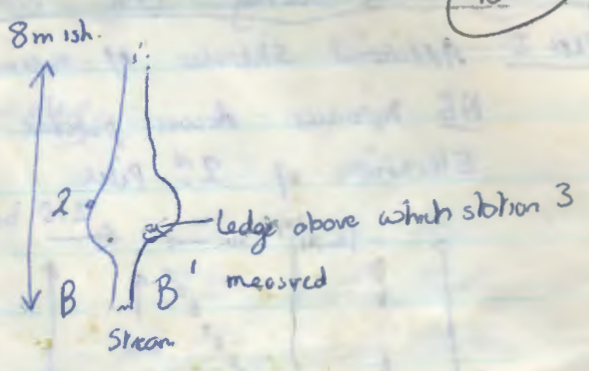 8m ish.
2
ledge above which station 3
B B' measured
Stream